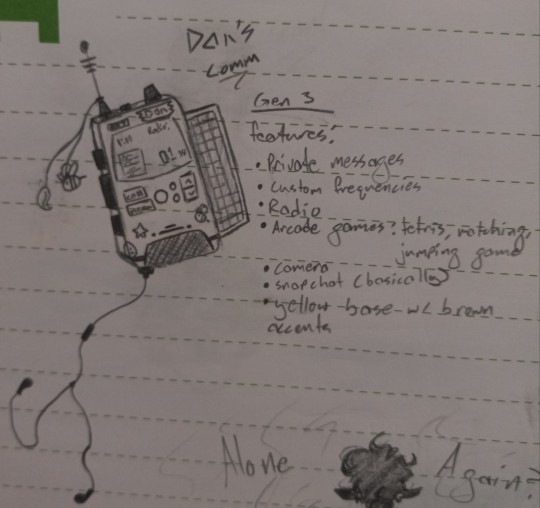 Dan's
Comm
Gen 3
features:
• Private messages
• Custom frequencies
• Radio
• Arcade games: tetris, matching,
jumping game
• camera
• snapchat (basically)
• yellow base w/ brown
accents
Dan
Radio:
Alone Again?